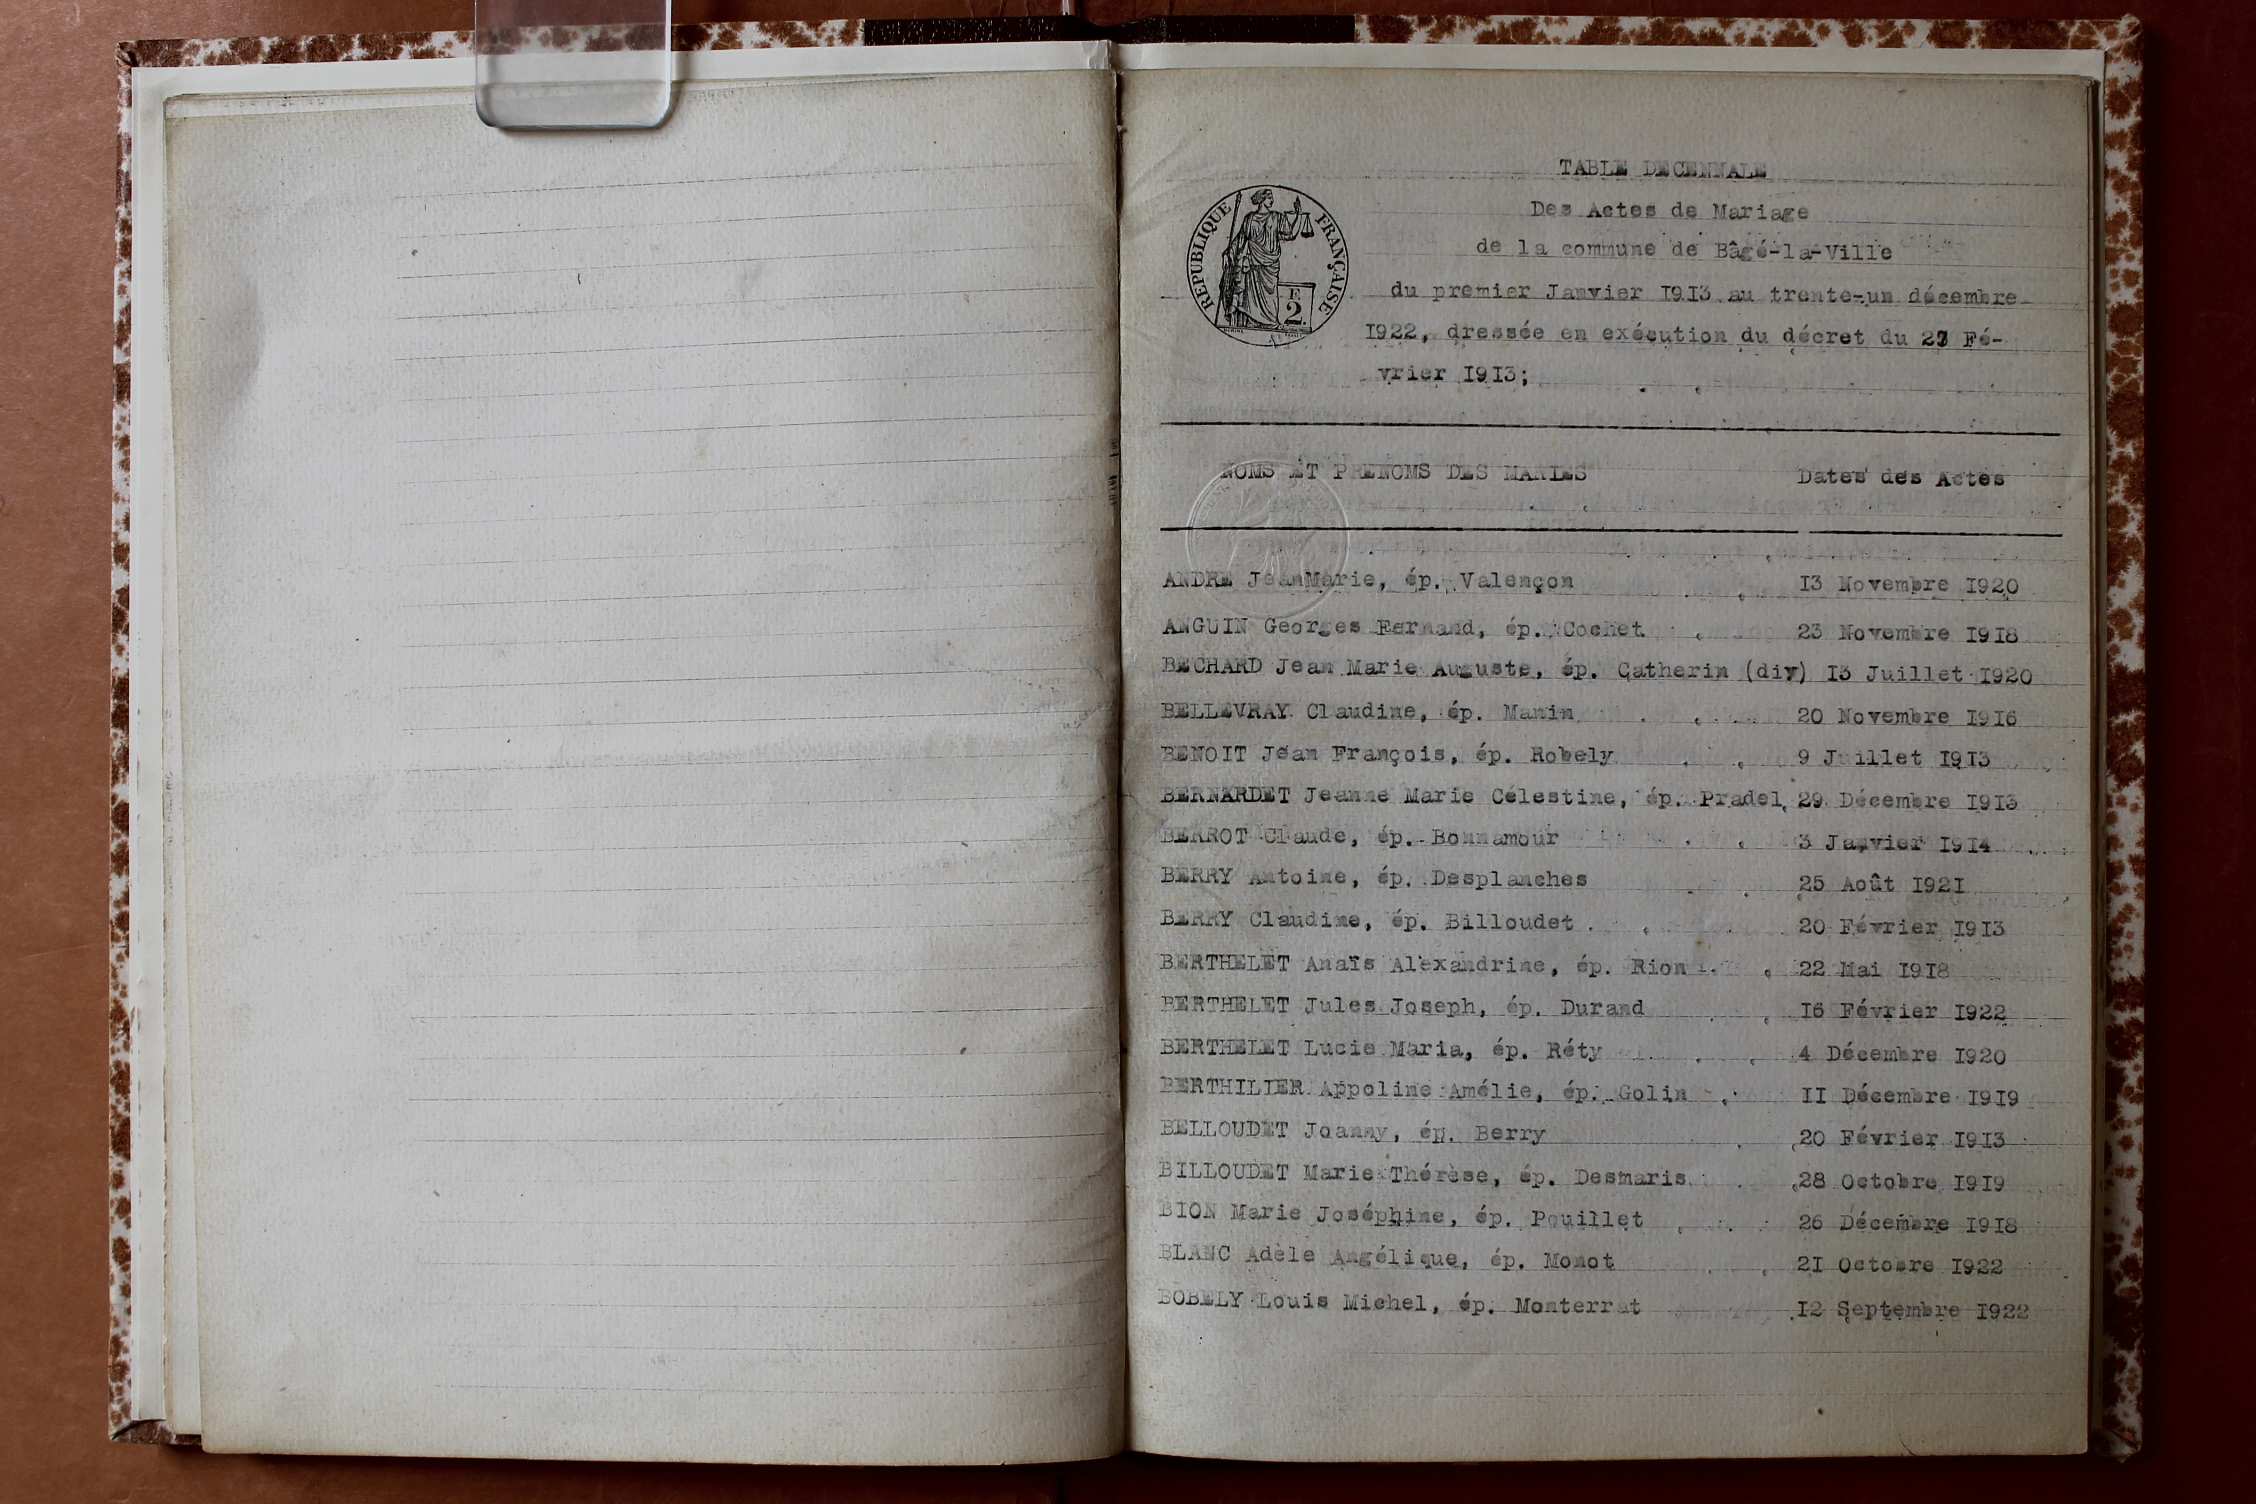 TABLE DECENNALE
Des Actes de Mariage
de la commune de Bâgé-la-Ville
du premier Janvier I9I3 au trente-un décembre
I922, dressée en exécution du décret du 27 Fé-
vrier I9I3;
REPUBLIQUE FRANÇAISE
2
NOMS ET PRENOMS DES MARIES Dates des Actes
ANDRE JeanMarie, ép. Valençon I3 Novembre I920
ANGUIN Georges Fernand, ép. Cochet 23 Novembre I9I8
BECHARD Jean Marie Auguste, ép. Catherin (div) I3 Juillet I920
BELLEVRAY Claudine, ép. Manin 20 Novembre I9I6
BENOIT Jean François, ép. Robely 9 Juillet I9I3
BERNARDET Jeanne Marie Célestine, ép. Pradel 29 Décembre I9I3
BERROT Claude, ép. Bonnamour 3 Janvier I9I4
BERRY Antoine, ép. Desplanches 25 Août I92I
BERRY Claudine, ép. Billoudet 20 Février I9I3
BERTHELET Anaïs Alexandrine, ép. Rion 22 Mai I9I8
BERTHELET Jules Joseph, ép. Durand I6 Février I922
BERTHELET Lucie Maria, ép. Réty 4 Décembre I920
BERTHILIER Appoline Amélie, ép. Golin II Décembre I9I9
BELLOUDET Joanny, ép. Berry 20 Février I9I3
BILLOUDET Marie Thérèse, ép. Desmaris 28 Octobre I9I9
BION Marie Joséphine, ép. Pouillet 26 Décembre I9I8
BLANC Adèle Angélique, ép. Monot 2I Octobre I922
BOBELY Louis Michel, ép. Monterrat I2 Septembre I922